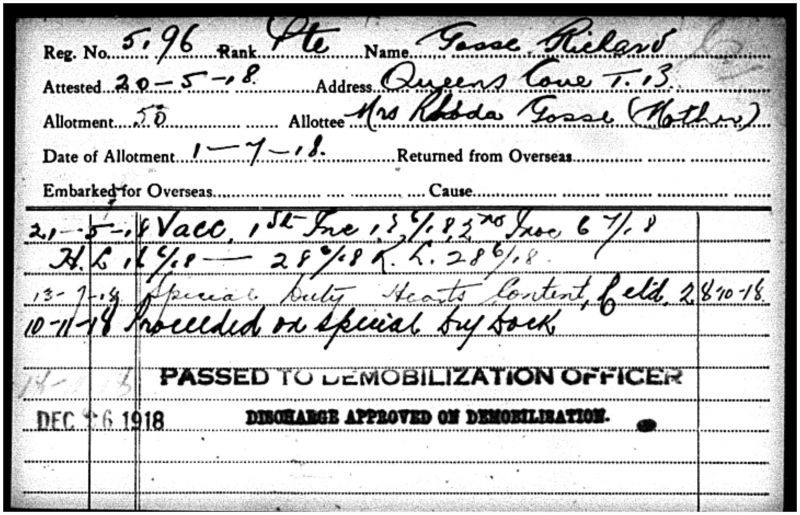 Reg. No. 5196 Rank Pte Name Gosse Richard
Attested 20-5-18. Address Queens Cove T.B.
Allotment 50 Allottee Mrs Rhoda Gosse (Mother)
Date of Allotment 1-7-18. Returned from Overseas
Embarked for Overseas Cause
21-5-18 Vacc. 1st Inc 13 6/18, 2nd Inoc 6 7/18
H. L. 16 6/18 — 28 6/18 R. L. 28 6/18.
13-7-18 Special Duty Hearts Content, 28-10-18
10-11-18 Proceeded on special Dry Dock
PASSED TO DEMOBILIZATION OFFICER
DEC 26 1918 DISCHARGE APPROVED ON DEMOBILISATION.